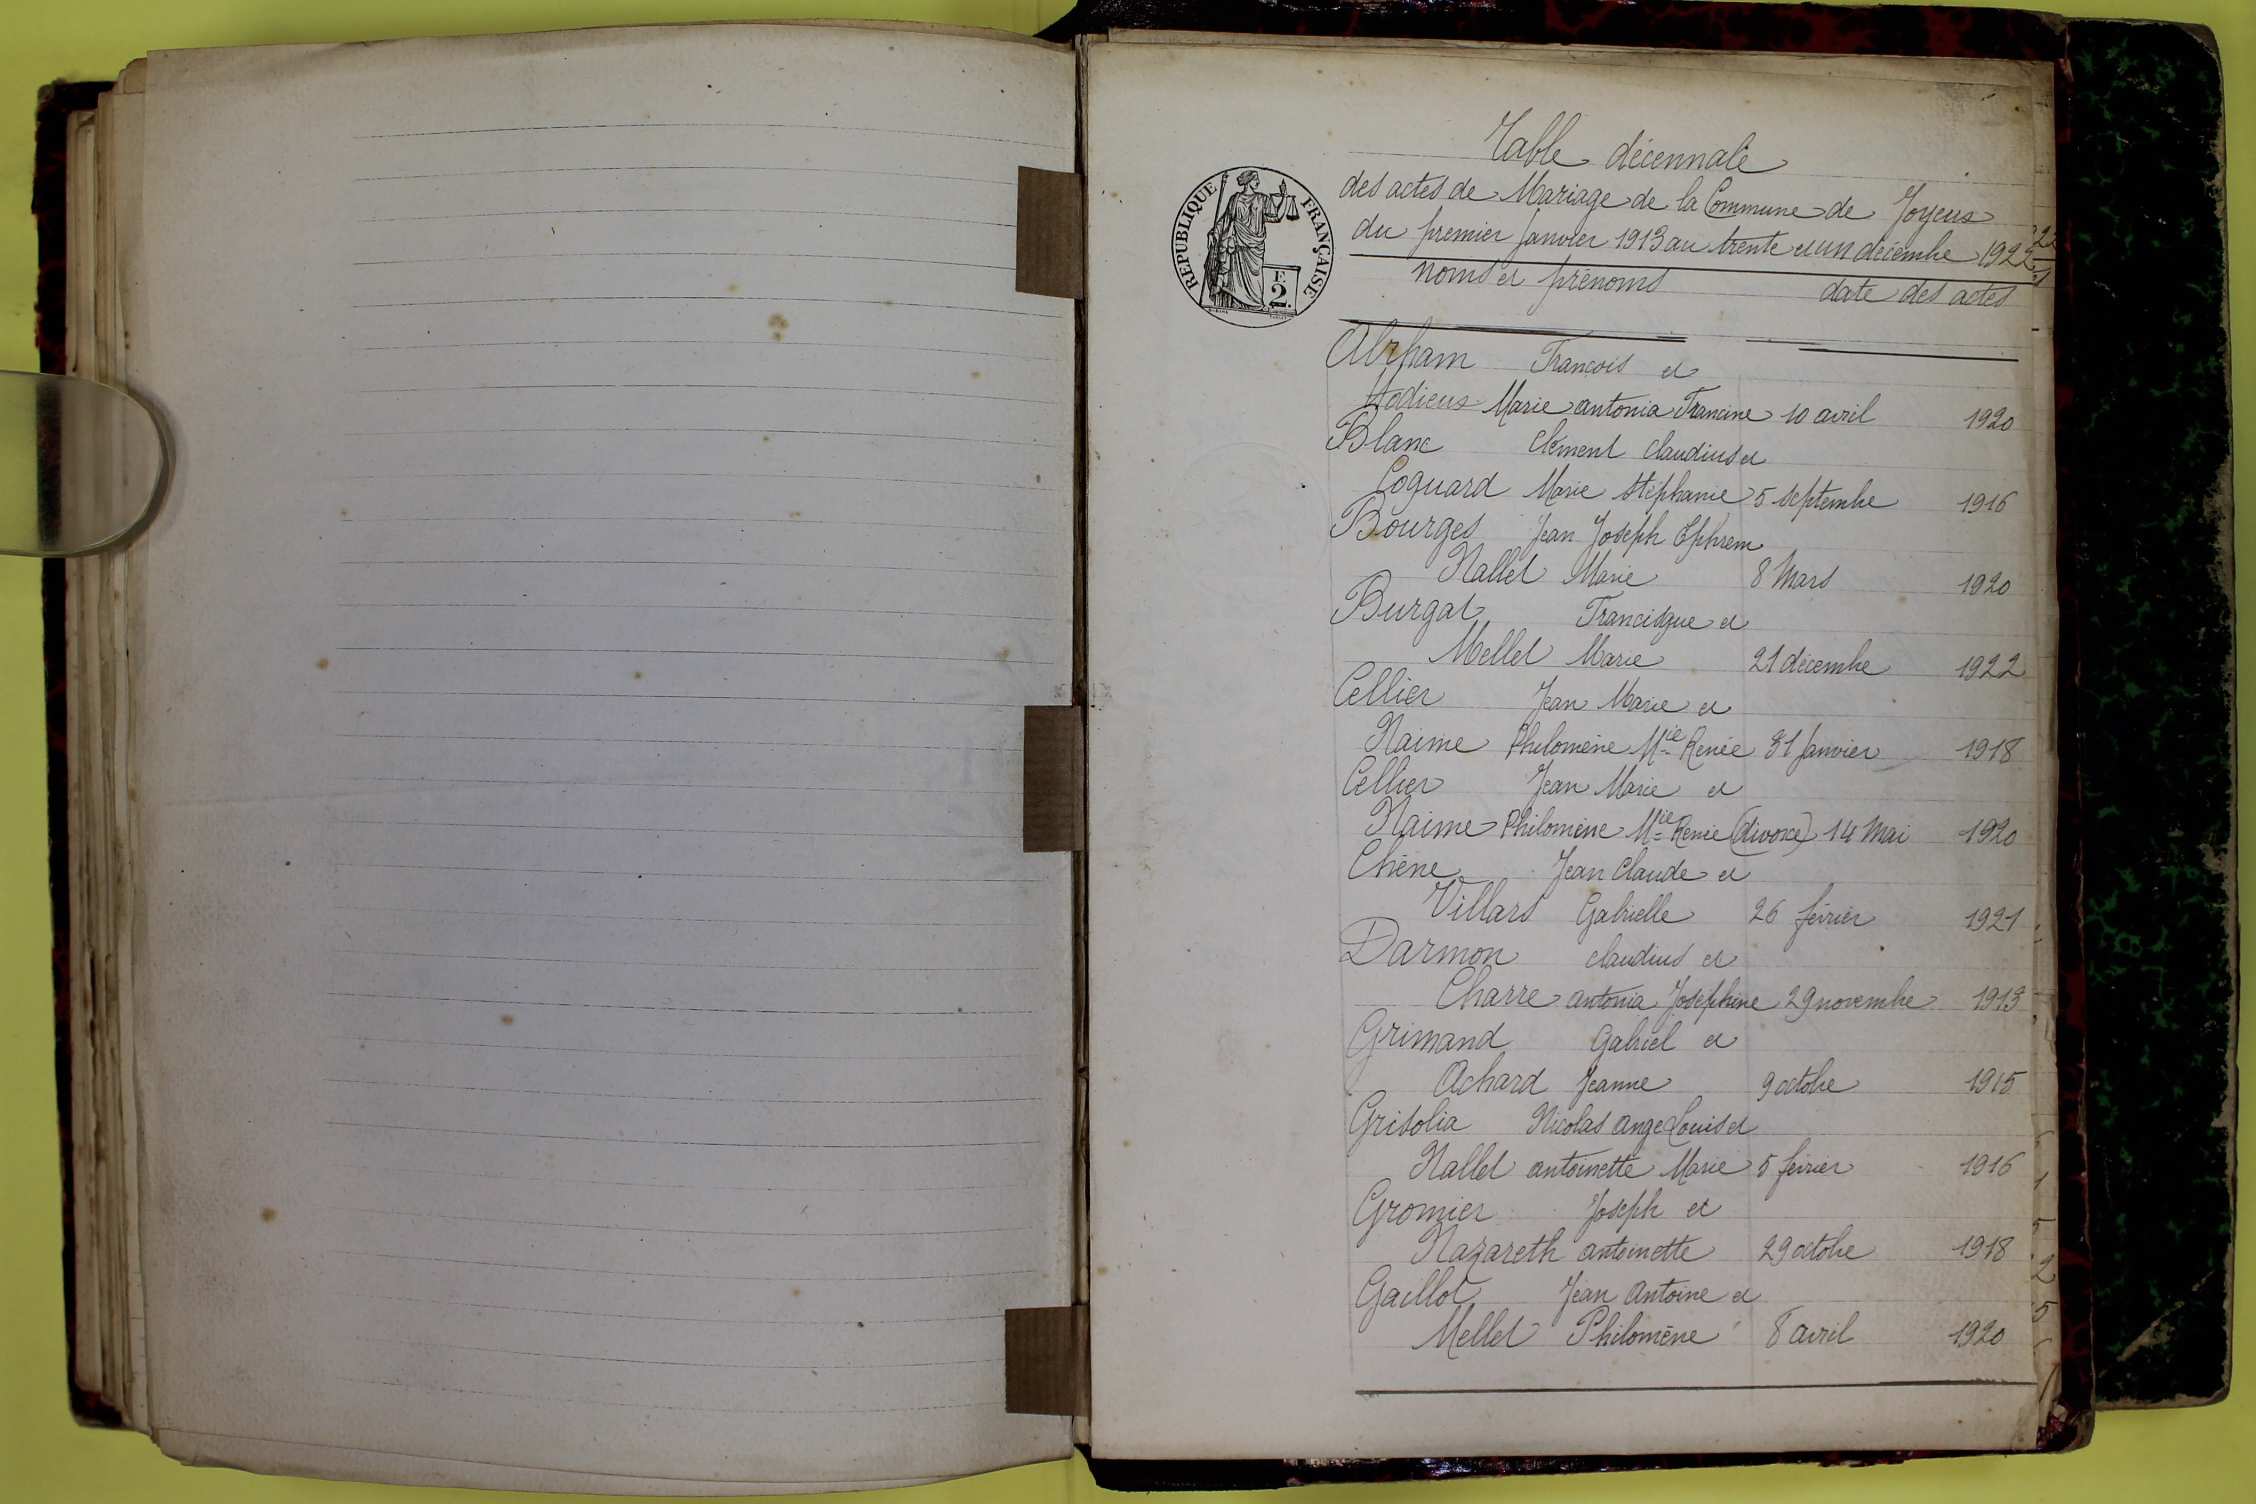 RÉPUBLIQUE FRANÇAISE
F.
2.
Table décennale
des actes de Mariage de la Commune de Joyeux
du premier Janvier 1913 au trente et un décembre 1922
noms et prénoms date des actes
Abrham François et
Marie antonia Francine 10 avril 1920
Blanc Clément Claudius et
Coquard Marie Stéphanie 5 septembre 1916
Bourges Jean Joseph Ephrem
Nallet Marie 8 Mars 1920
Burgat Francisque et
Mellet Marie 21 décembre 1922
Cellier Jean Marie et
Naime Philomène Mie Renée 31 Janvier 1918
Cellier Jean Marie et
Naime Philomène Mie Renée (divorce) 14 Mai 1920
Chêne Jean Claude et
Villars Gabrielle 26 février 1921
Darmon claudius et
Charre antonia Joséphine 29 novembre 1913
Grimand Gabriel et
Achard Jeanne 9 octobre 1915
Grisolia Nicolas Ange Louis et
Nallet antoinette Marie 5 février 1916
Gromier Joseph et
Nazareth antoinette 29 octobre 1918
Gaillot Jean Antoine et
Mellet Philomène 8 avril 1920